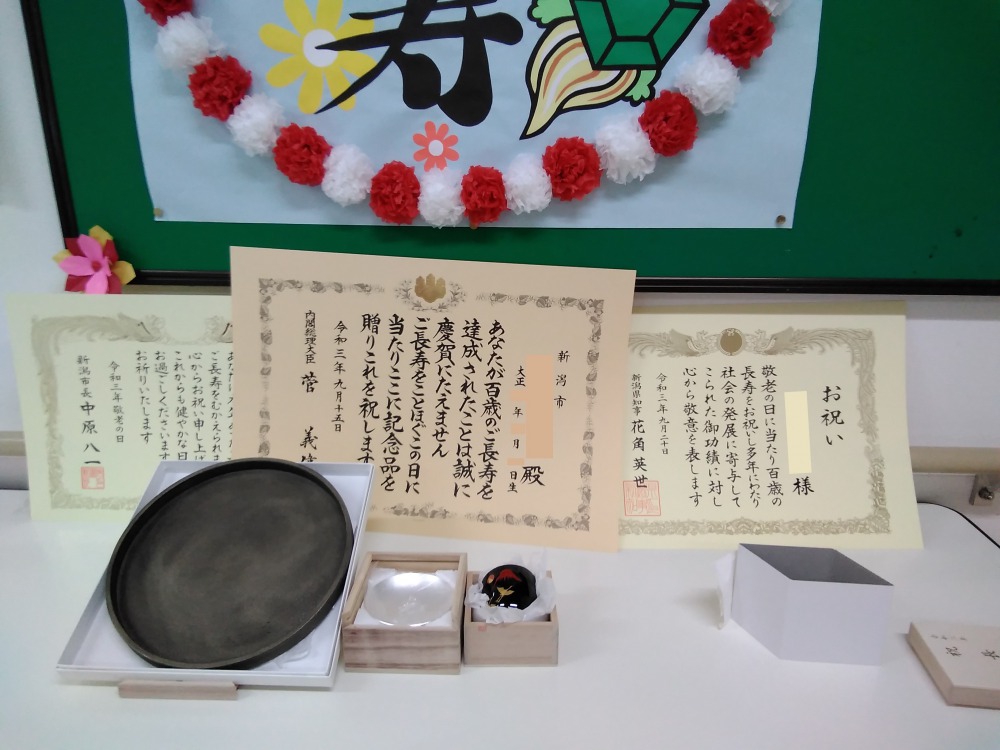 寿
新潟市
大正 年 月 日生
殿
あなたが百歳のご長寿を
達成されたことは誠に
慶賀にたえません
ご長寿をことほぎこの日に
当たりここに記念品を
贈りこれを祝します
令和三年九月十五日
内閣総理大臣 菅 義
お祝い
様
敬老の日に当たり百歳の
長寿をお祝いし多年にわたり
社会の発展に寄与して
こられた御功績に対し
心から敬意を表します
令和三年九月二十日
新潟県知事 花角英世
ご長寿をむかえられま
心からお祝い申し上げ
これからも健やかな日
お過ごしくださいます
お祈りいたします
令和三年 敬老の日
新潟市長 中原八一